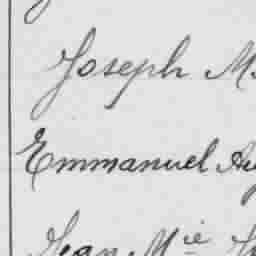 Joseph M
Emmanuel Au
Jean Mie